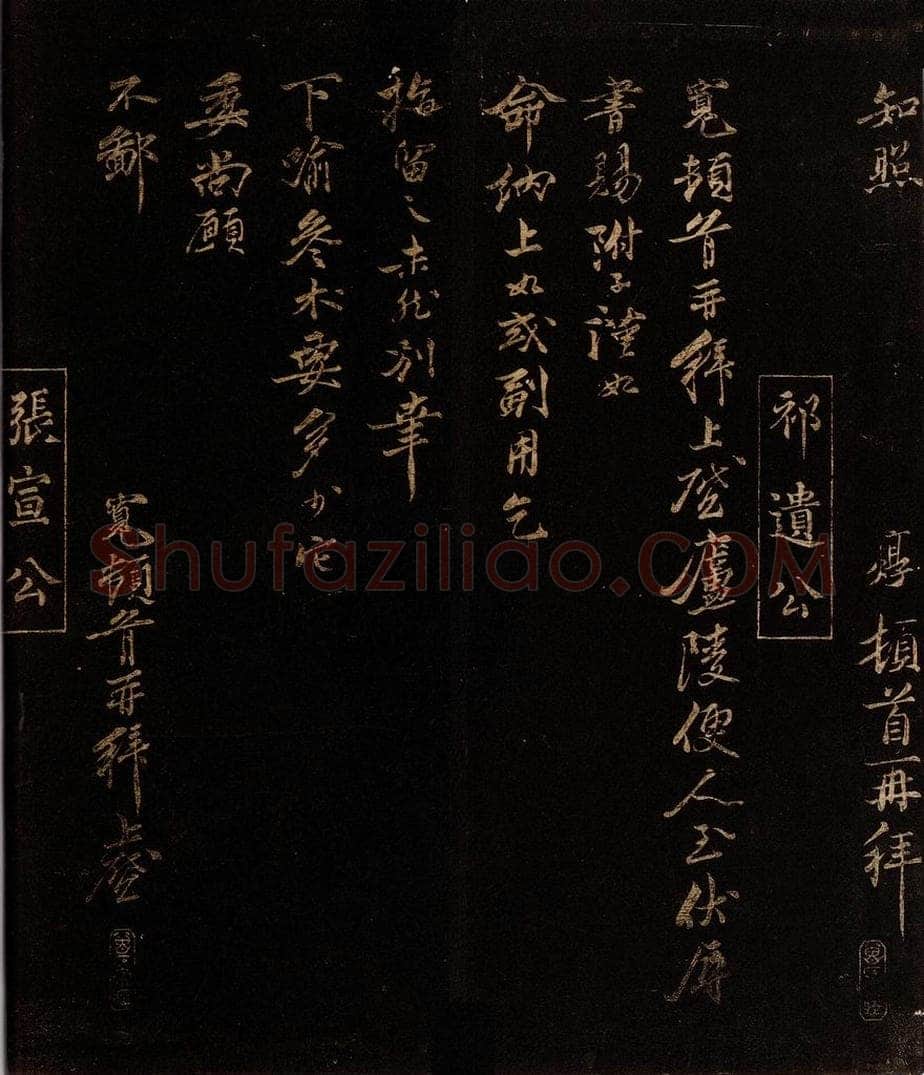 知照
頓首再拜
祁遺公
寬頓首再拜上啓廬陵便人至伏辱
書賜附子謹如
命納上如或副用乞
留之未然別幸
下喻參朮要多少它
委尚願
不鄙
寬頓首再拜上啓
張宣公
Shufaziliao.com